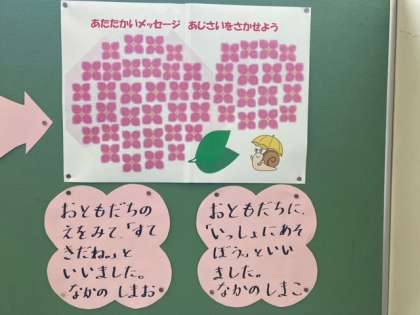 あたたかいメッセージ あじさいをさかせよう
おともだちの
えをみて、「すて
きだね。」と
いいました。
なかの しまお
おともだちに、
「いっしょにあそ
ぼう。」といい
ました。
なかの しまこ